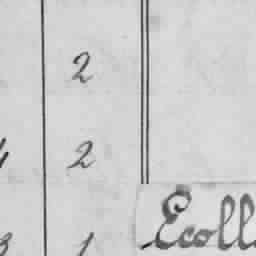 2
2
1 Ecoll